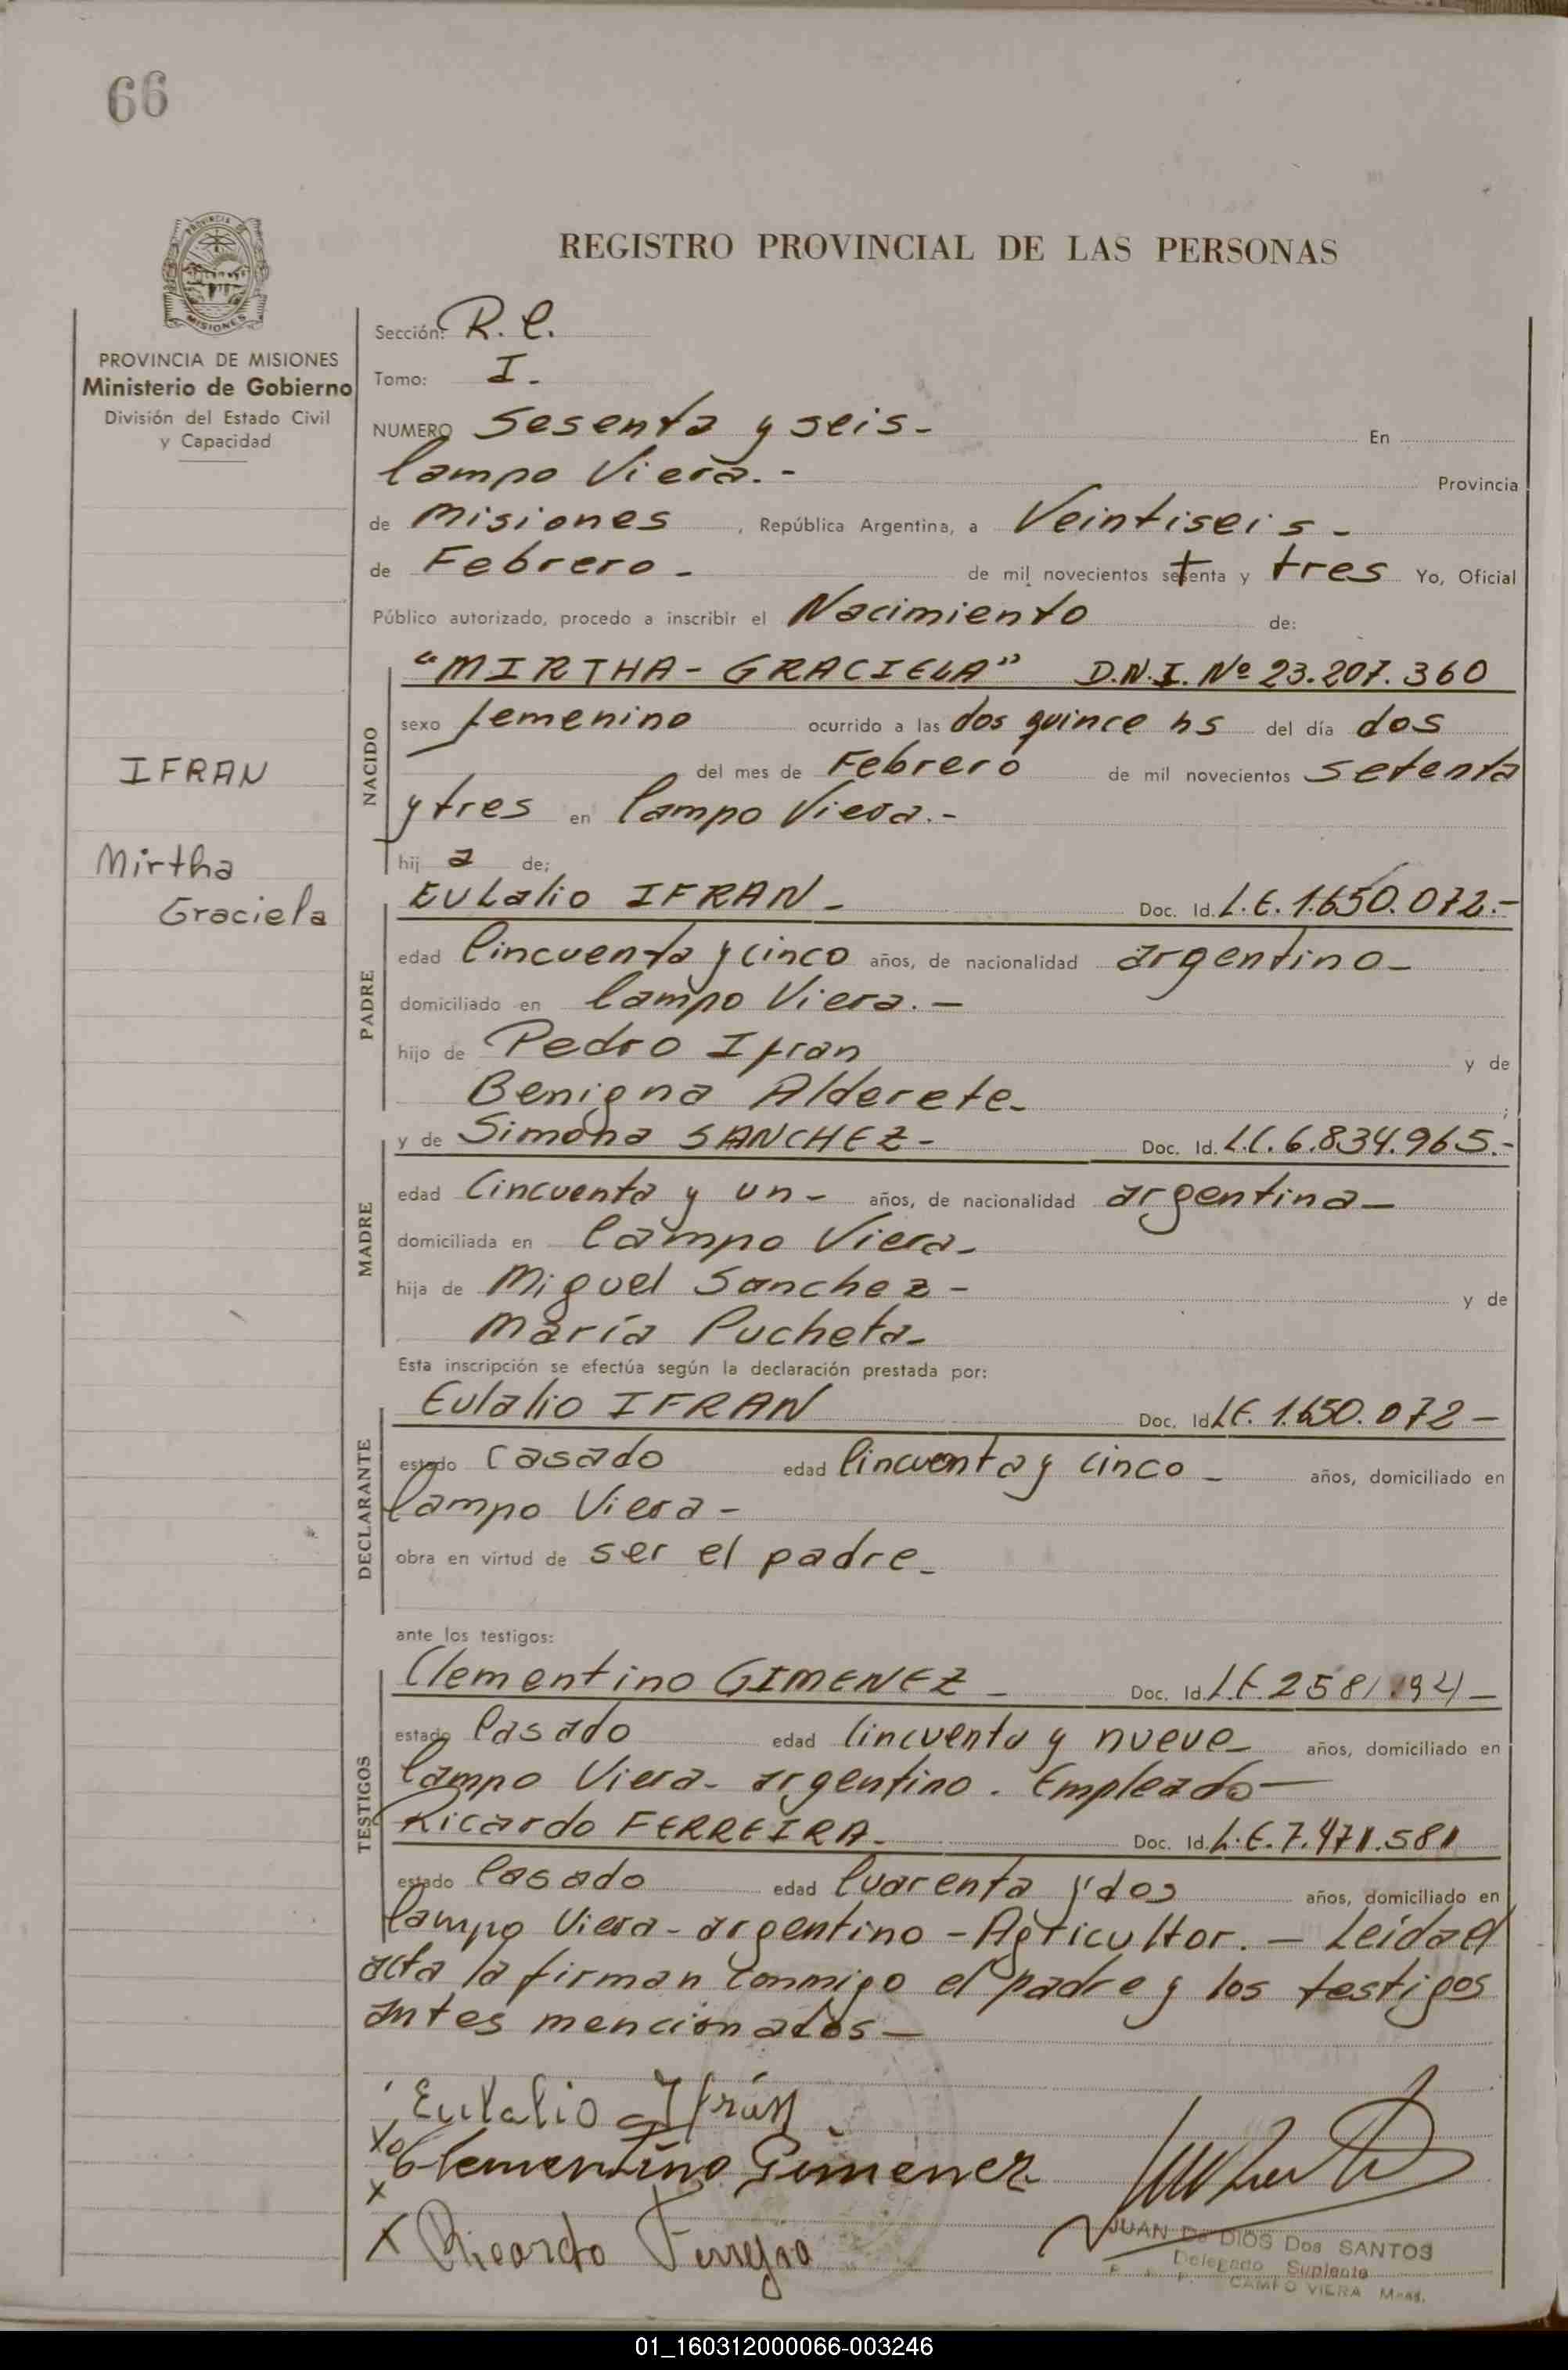 66
REGISTRO PROVINCIAL DE LAS PERSONAS
PROVINCIA DE MISIONES
MISIONES
PROVINCIA DE MISIONES
Ministerio de Gobierno
División del Estado Civil
y Capacidad
IFRAN
Mirtha
Graciela
Sección: R. C.
Tomo: I.
NUMERO Sesenta y seis- En
Campo Viera.- Provincia
de Misiones, República Argentina, a Veintiseis-
de Febrero- de mil novecientos setenta y tres Yo, Oficial
Público autorizado, procedo a inscribir el Nacimiento de:
NACIDO
"MIRTHA-GRACIELA" D.N.I. Nº 23.207.360
sexo femenino ocurrido a las dos quince hs del día dos
del mes de Febrero de mil novecientos setenta
y tres en Campo Viera.-
hij a de;
PADRE
Eulalio IFRAN- Doc. Id. L.E. 1.650.072.-
edad Cincuenta y cinco años, de nacionalidad argentino-
domiciliado en Campo Viera.-
hijo de Pedro Ifran y de
Benigna Alderete- ;
MADRE
y de Simona SANCHEZ- Doc. Id. L.C. 6.834.965.-
edad Cincuenta y un- años, de nacionalidad argentina-
domiciliada en Campo Viera-
hija de Miguel Sanchez- y de
María Pucheta-
Esta inscripción se efectúa según la declaración prestada por:
DECLARANTE
Eulalio IFRAN Doc. Id. L.E. 1.650.072-
estado Casado edad Cincuenta y cinco- años, domiciliado en
Campo Viera-
obra en virtud de ser el padre-
ante los testigos:
TESTIGOS
Clementino GIMENEZ- Doc. Id. L.E.
estado Casado edad Cincuenta y nueve- años, domiciliado en
Campo Viera- argentino. Empleado-
Ricardo FERREIRA- Doc. Id. L.E. 7.471.581
estado Casado edad Cuarenta y dos años, domiciliado en
Campo Viera-argentino-Agricultor.- Leida el
acta la firman conmigo el padre y los testigos
antes mencionados-
Eulalio Ifrán
X Clementino Gimenez
X
X Ricardo Ferreyra
JUAN De DIOS Dos SANTOS
Delegado Suplente
CAMPO VIERA Mnes.
01_160312000066-003246